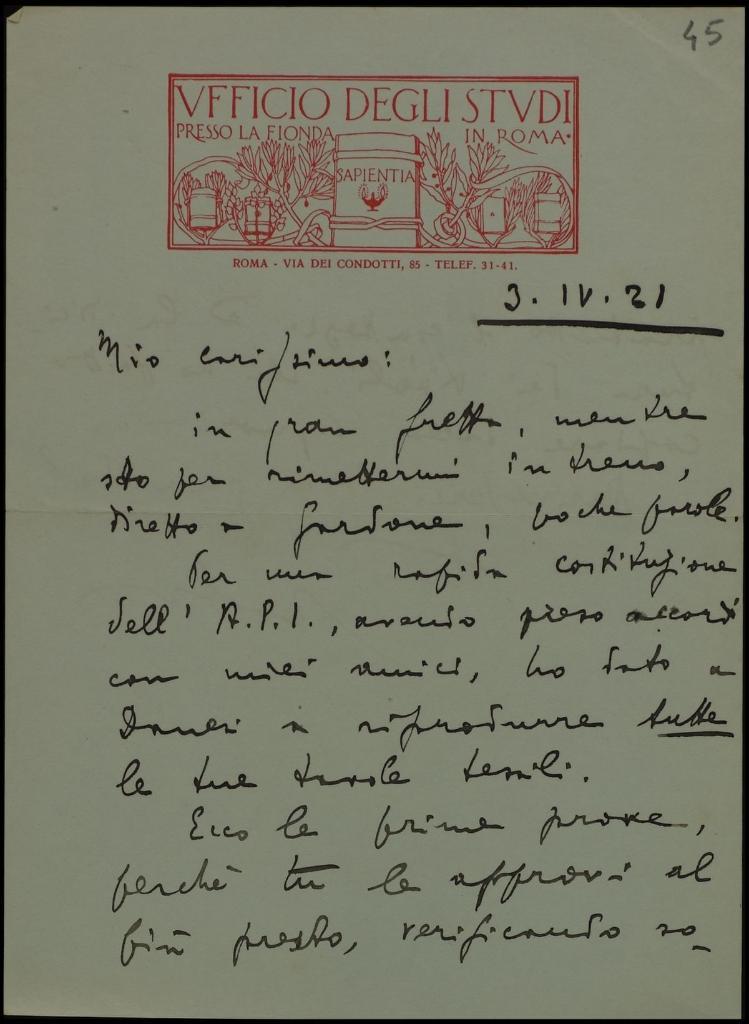 45
VFFICIO DEGLI STVDI
PRESSO LA FIONDA IN ROMA
SAPIENTIA
ROMA - VIA DEI CONDOTTI, 85 - TELEF. 31-41.
3. IV. 21
Mio carissimo:
in gran fretta, mentre
sto per rimettermi in treno,
diretto a Gardone, poche parole.
Per una rapida costituzione
dell' A.P.I., avendo preso accordi
con miei amici, ho dato a
Danesi a riprodurre tutte
le tue tavole tessili.
Ecco le prime prove,
perchè tu le approvi al
più presto, verificando so-